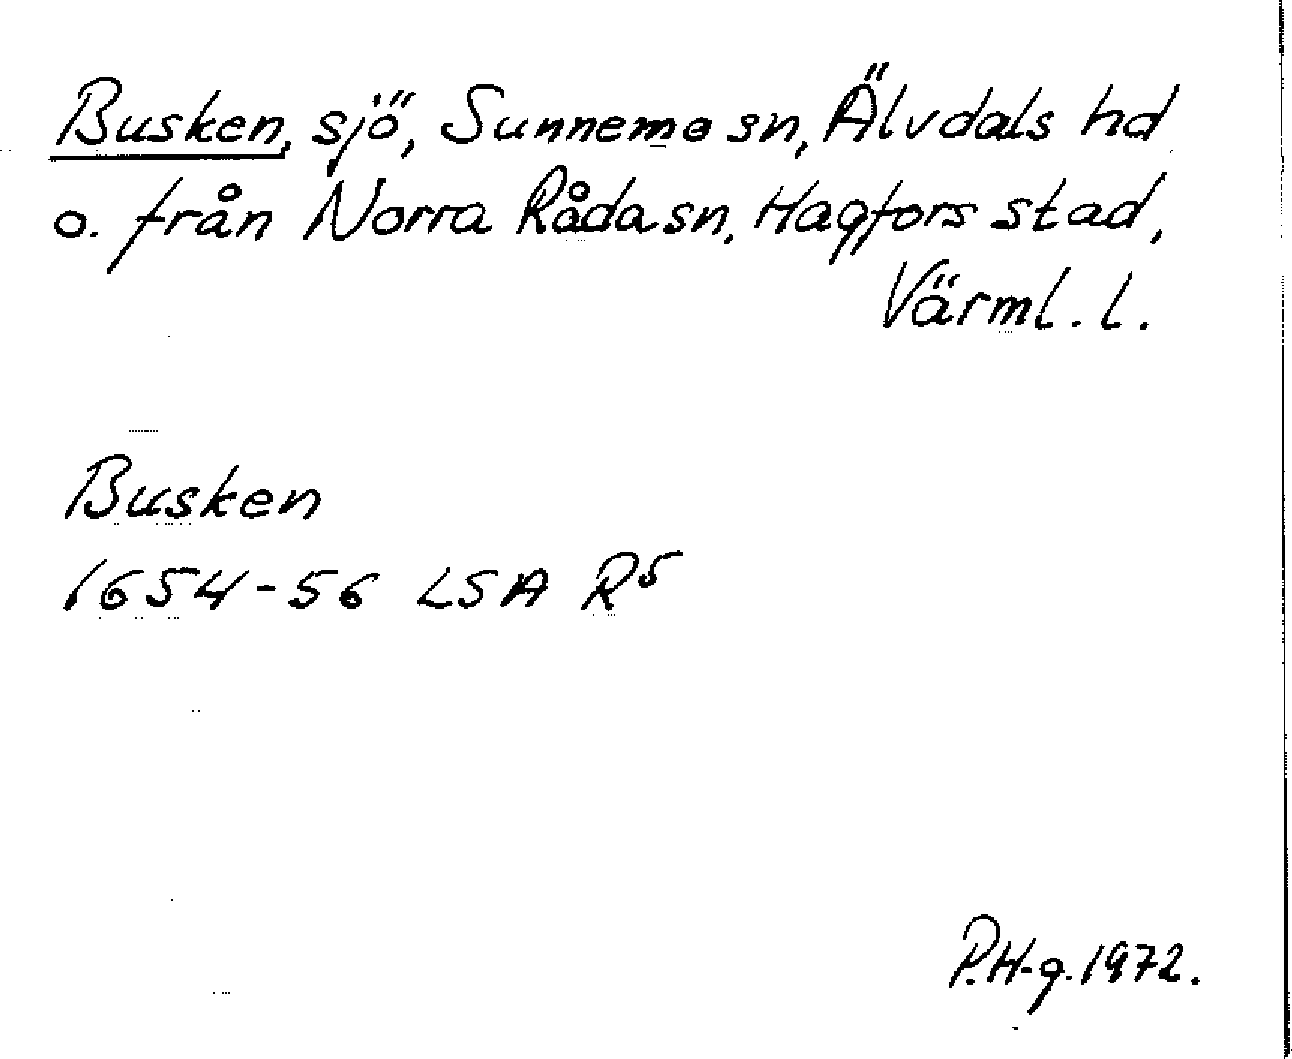 Busken, sjö, Sunnemo sn, Älvdals hd
o. från Norra Råda sn, Hagfors stad,
Värml. l.
Busken
1654-56 LSA R⁵
P.H-g. 1972.